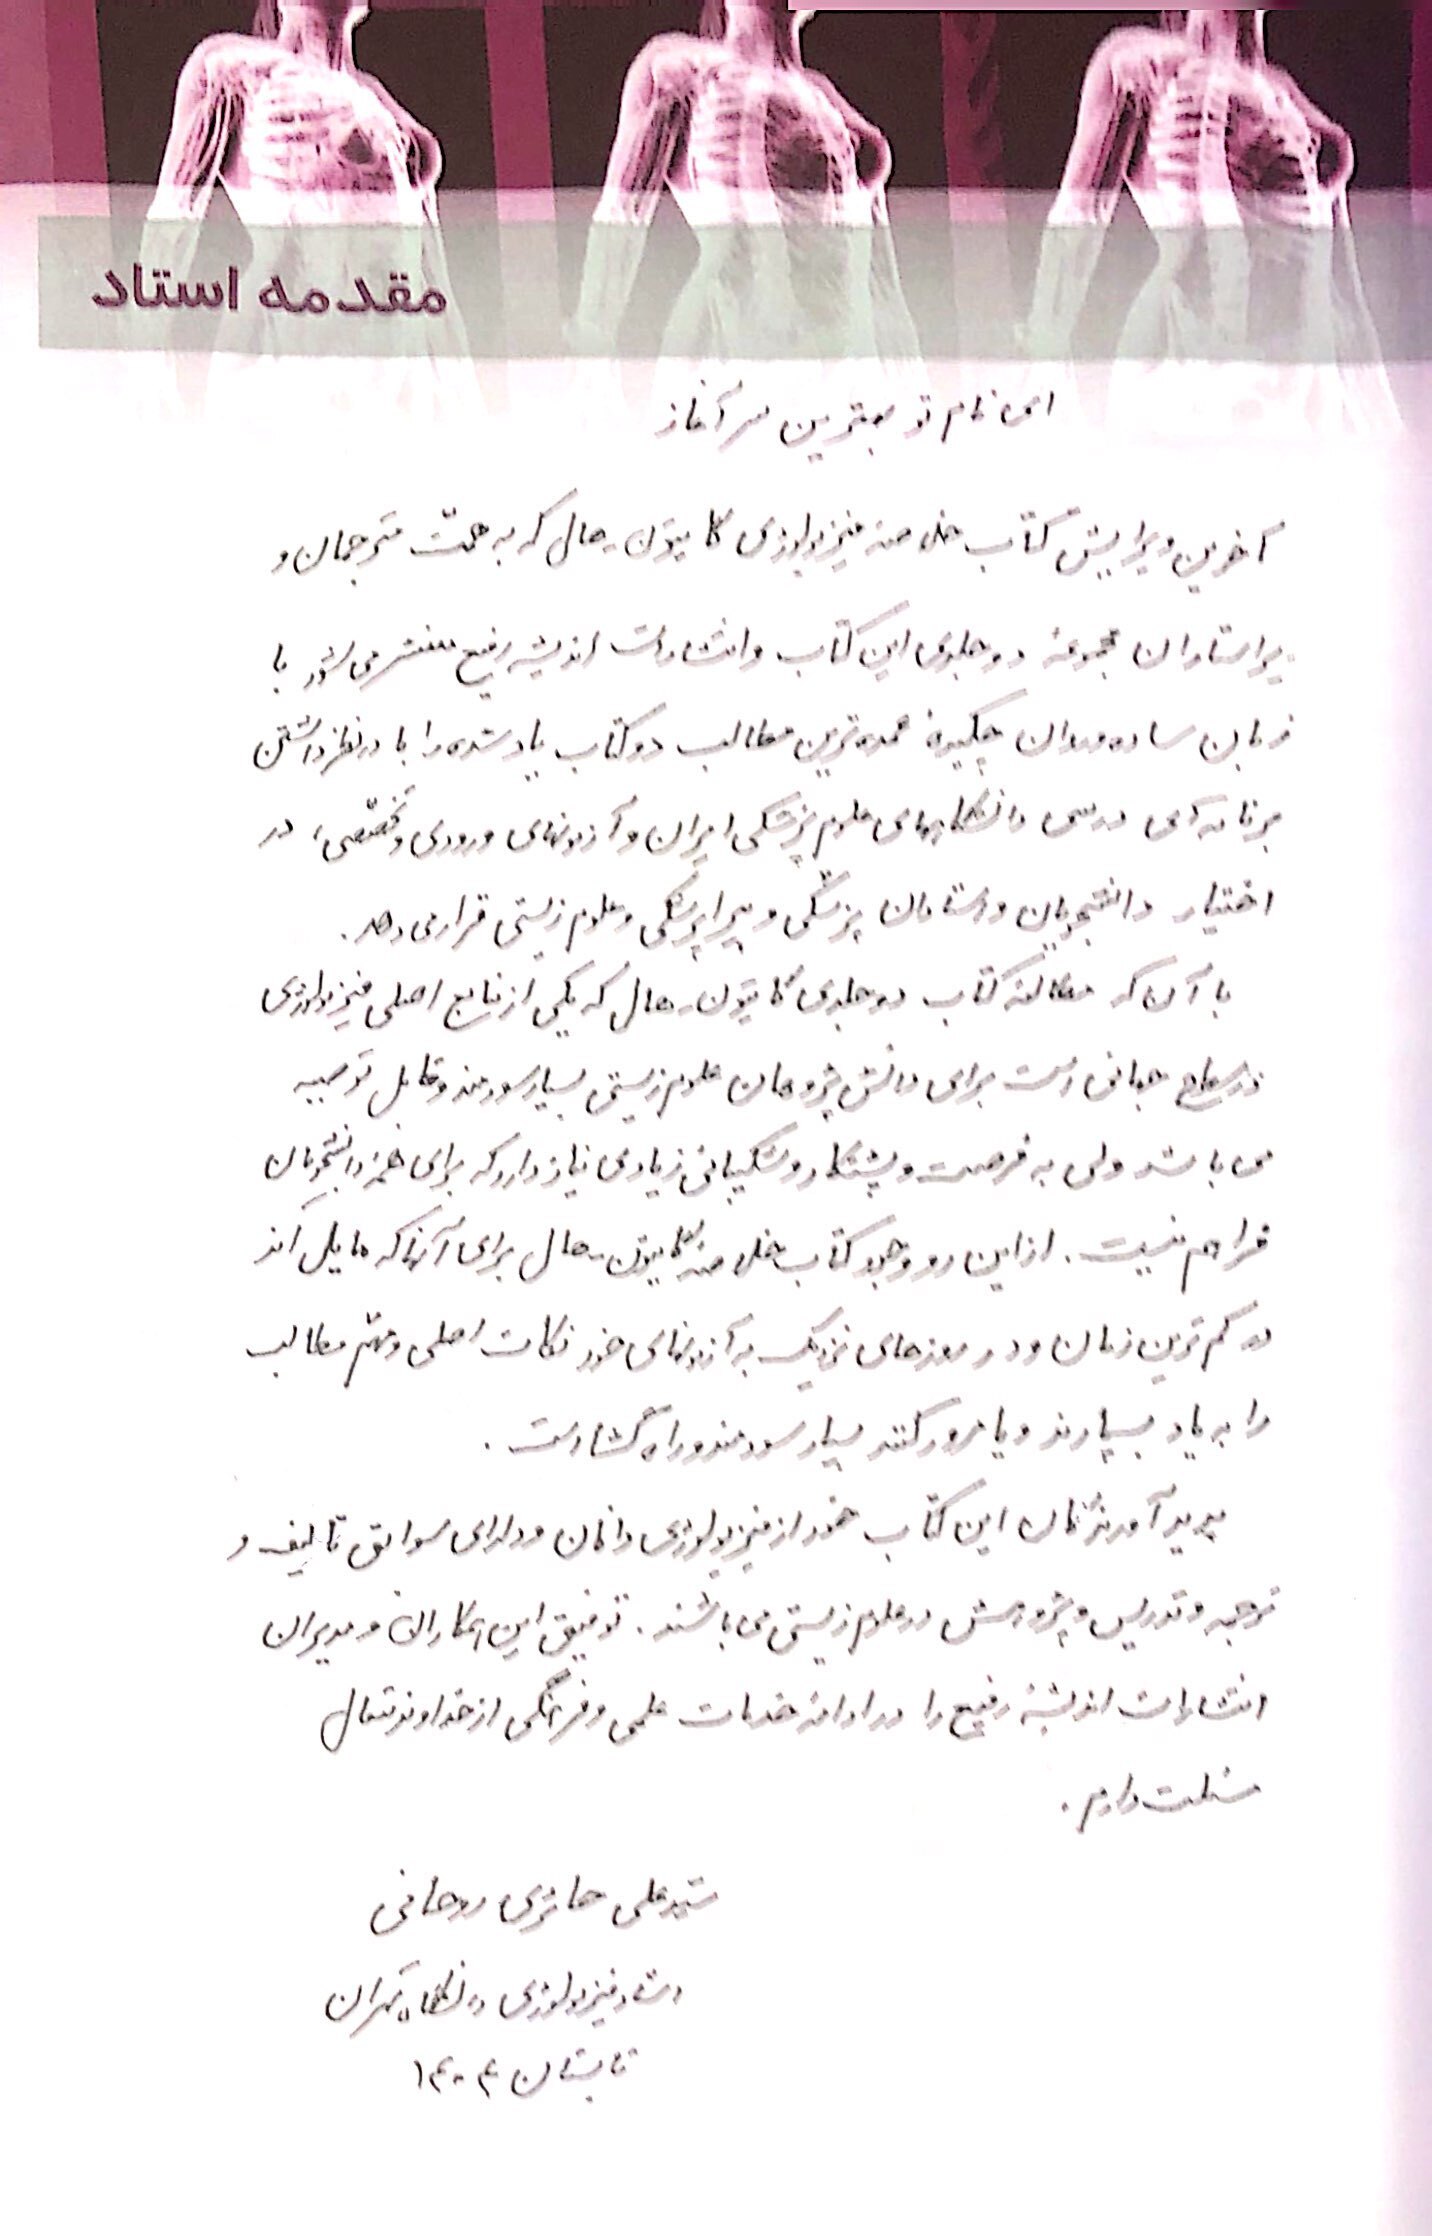 مقدمه استاد
ای نام تو بهترین سرآغاز
آخرین ویرایش کتاب خلاصه فیزیولوژی گایتون-هال که به همت مترجمان و
ویراستاران مجموعه دو جلدی این کتاب و انتشارات اندیشه رفیع منتشر می شود با
زبان ساده و روان چکیده عمده ترین مطالب دو کتاب یاد شده را با در نظر داشتن
برنامه های درسی دانشگاههای علوم پزشکی ایران و آزمونهای ورودی و تخصصی، در
اختیار دانشجویان و استادان پزشکی و پیراپزشکی و علوم زیستی قرار می دهد.
با آن که مطالعه کتاب دو جلدی گایتون-هال که یکی از منابع اصلی فیزیولوژی
در سطح جهانی است برای دانش پژوهان علوم زیستی بسیار سودمند و قابل توصیه
می باشد ولی به فرصت و پشتکار و شکیبایی زیادی نیاز دارد که برای همه دانشجویان
فراهم نیست. از این رو وجود کتاب خلاصه گایتون-هال برای آنها که مایل اند
در کم ترین زمان و در روزهای نزدیک به آزمونهای خود نکات اصلی و مهم مطالب
را به یاد بسپارند و یا مرور کنند بسیار سودمند و راه گشا است.
پدید آورندگان این کتاب خود از فیزیولوژی دانان و دارای سوابق تالیف و
ترجمه و تدریس و پژوهش در علوم زیستی می باشند. توفیق این همکاران و مدیران
انتشارات اندیشه رفیع را در ادامه خدمات علمی و فرهنگی از خداوند متعال
مسئلت دارم.
سید علی حائری روحانی
استاد فیزیولوژی دانشگاه تهران
تابستان ۱۴۰۴